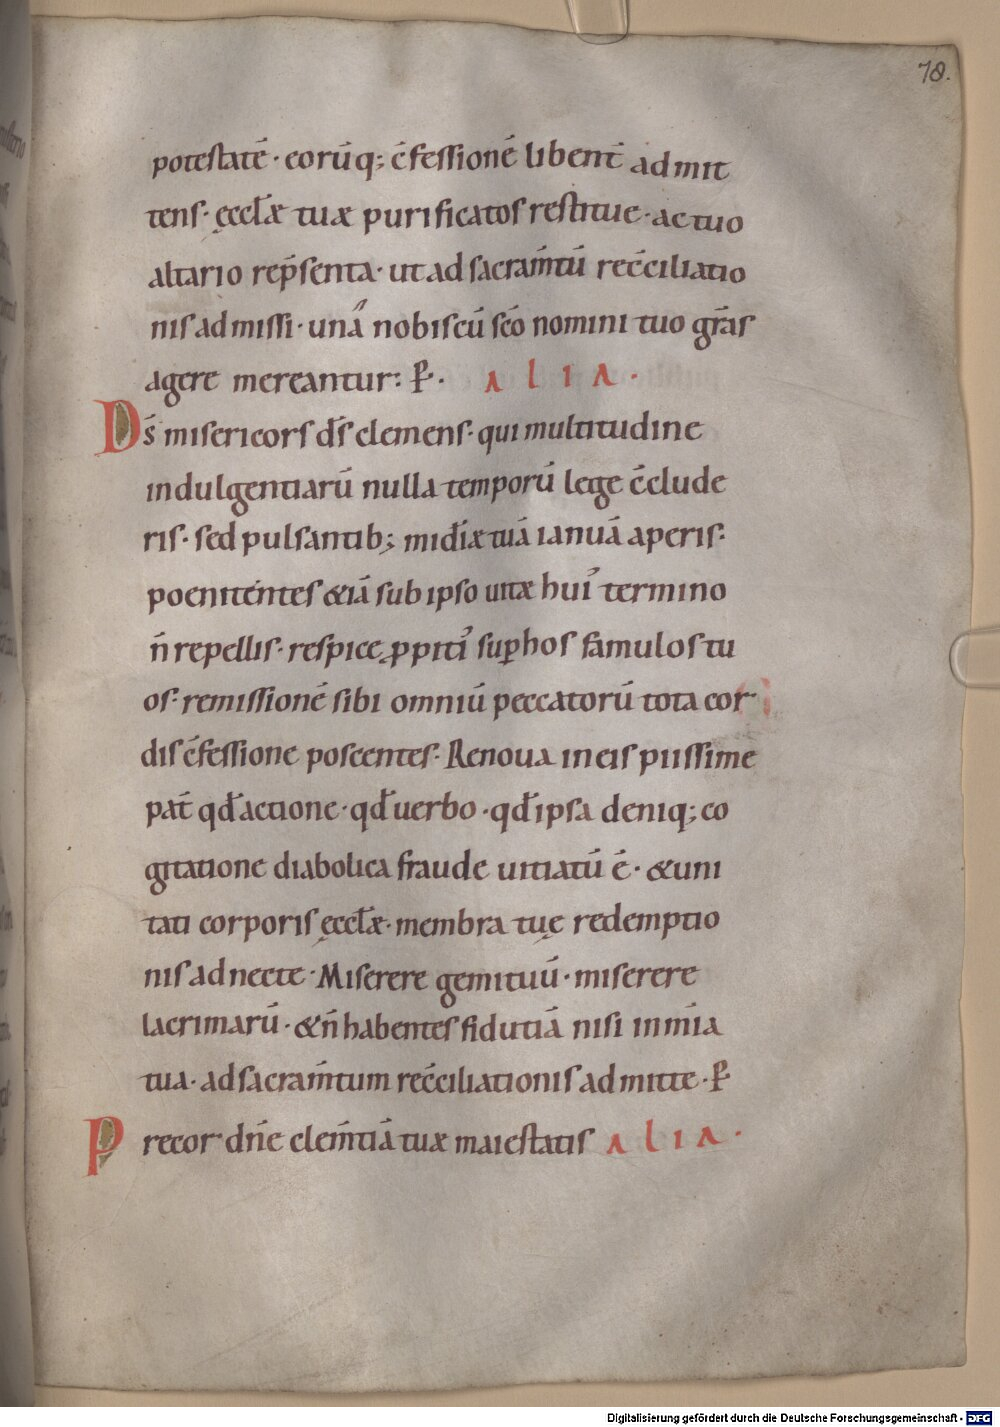 78.
potestatē · eorūq; c̄fessionē libent̄ admit
tens · ęccl̄æ tuæ purificatos restitue · ac tuo
altario rep̄senta · ut ad sacram̄tū rec̄ciliatio
nis admissi · unā nobiscū sc̄o nomini tuo gr̄as
agere mereantur : P̄ · ALIA ·
Ds̄ misericors ds̄ clemens · qui multitudine
indulgentiarū nulla temporū lege c̄clude
ris · sed pulsantib; mid̄iæ tuā ianuā aperis ·
poenitentes &iā sub ipso uitæ hui᾿ termino
n̄ repellis · respice ꝓpiti᾿ suꝑ hos famulos tu
os · remissionē sibi omniū peccatorū tota cor
dis c̄fessione poscentes · Renoua in eis piissime
pat̄ qd̄ actione · qd̄ uerbo · qd̄ ipsa deniq; co
gitatione diabolica fraude uitiatū ē · & uni
tati corporis ęccl̄æ · membra tuę redemptio
nis adnecte · Miserere gemituū · miserere
lacrimarū · & n̄ habentes fidutiā nisi in mīa
tua · ad sacram̄tum rec̄ciliationis admitte · P̄
Precor dn̄e clem̄tiā tuæ maiestatis ALIA ·
Digitalisierung gefördert durch die Deutsche Forschungsgemeinschaft - DFG